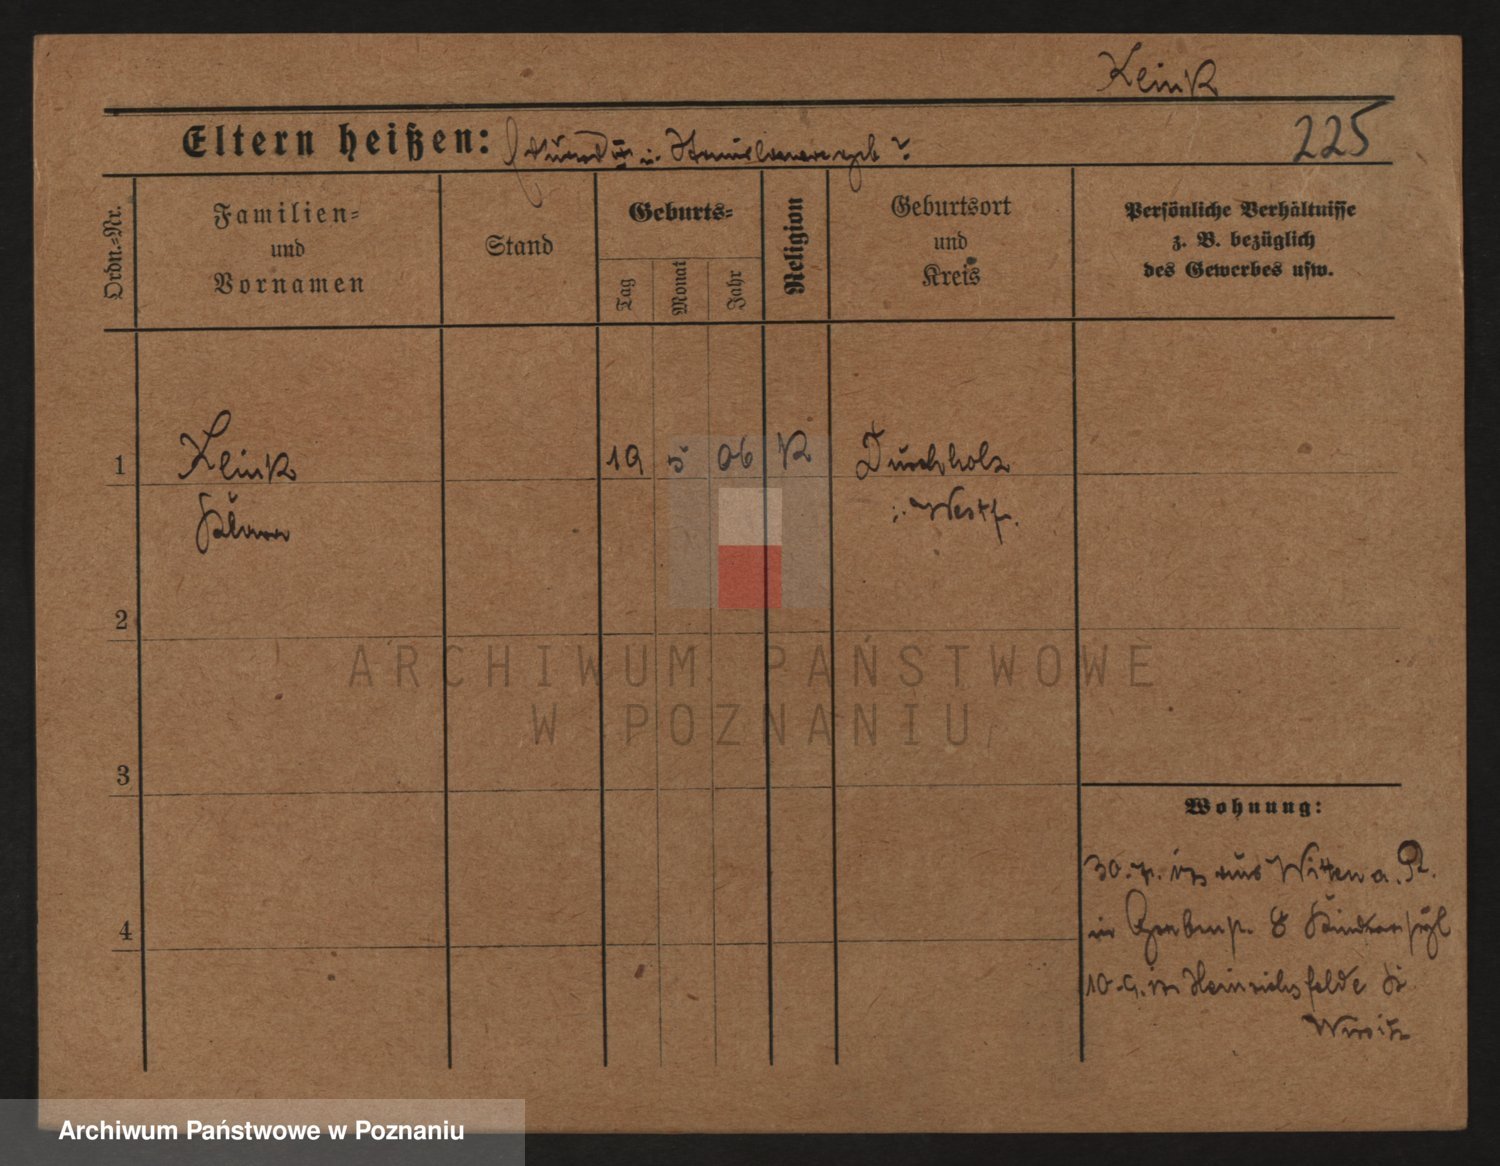 Klink
225
Eltern heißen: u. geb ?
Ordn.=Nr.
Familien=
und
Vornamen
Stand
Geburts=
Tag
Monat
Jahr
Religion
Geburtsort
und
Kreis
Persönliche Verhältnisse
z. B. bezüglich
des Gewerbes usw.
1 Klink 19 5 06 K Durchholz
i. Westf.
2
3
4
Wohnung:
30. aus Witten a. R.
in 8
10. 9. in Heinrichsfelde
Wirsitz
ARCHIWUM PAŃSTWOWE
W POZNANIU
Archiwum Państwowe w Poznaniu